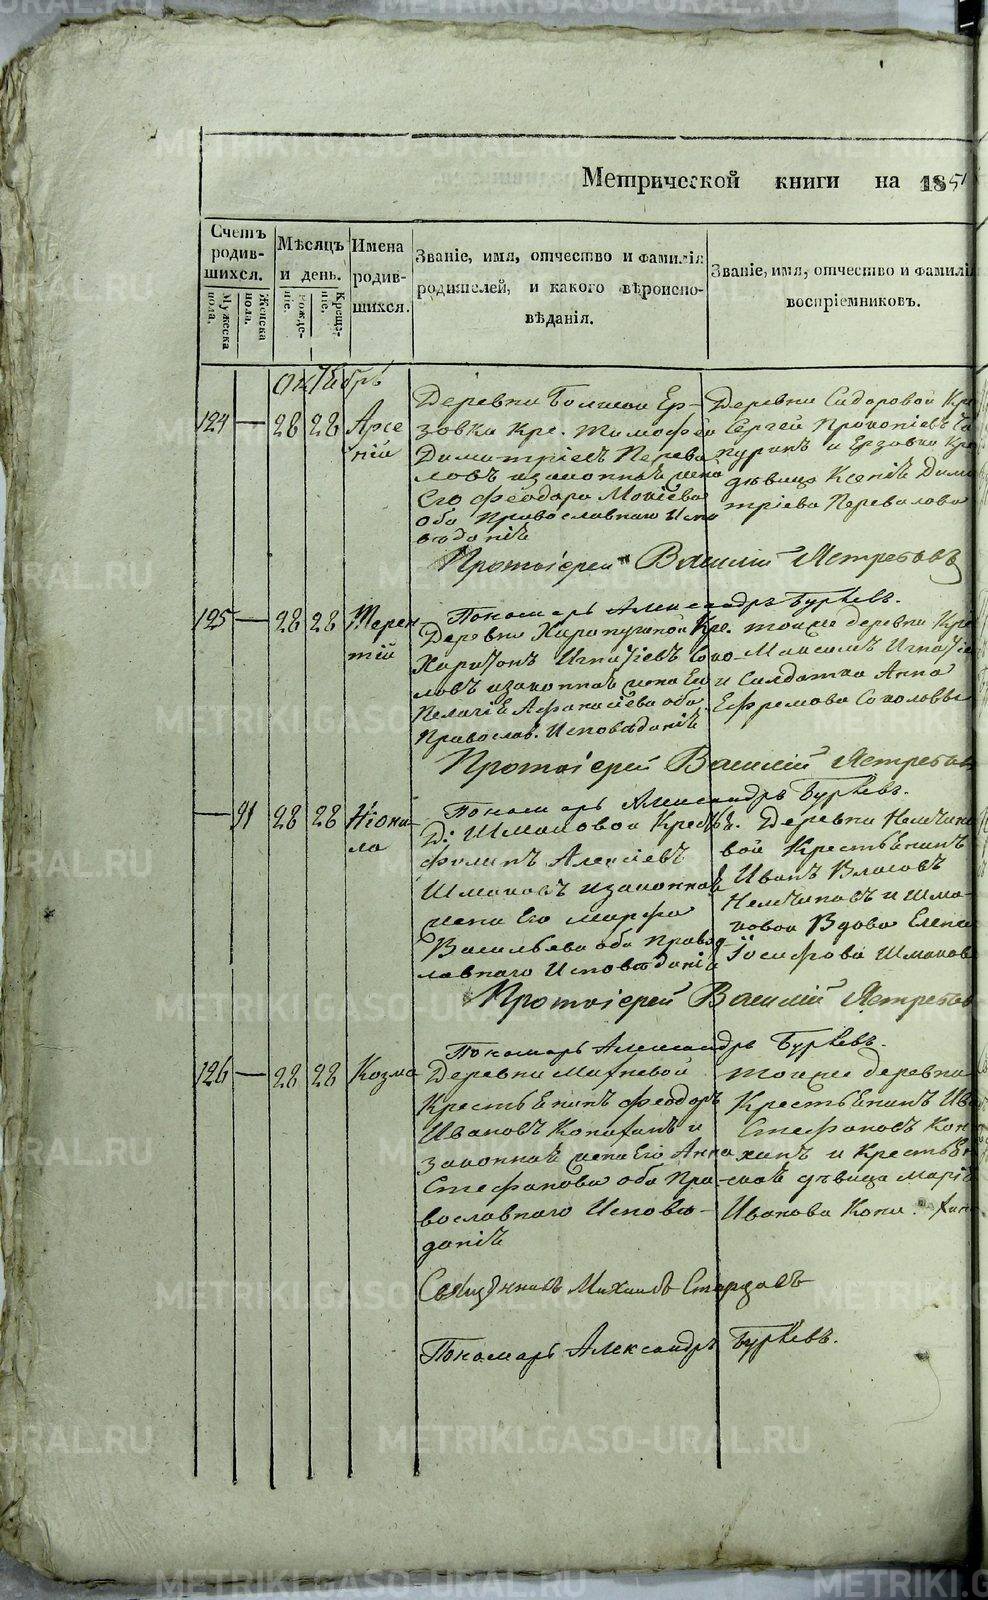 Метрической книги на 1851
Счетъ родив-шихся.
Мужеска пола.
Женска пола.
Мѣсяцъ и день.
Рожде-ніе.
Креще-ніе.
Имена родив-шихся.
Званіе, имя, отчество и фамилія
родителей, и какого вѣроиспо-
вѣданія.
Званіе, имя, отчество и фамилія
воспріемниковъ.
октябрь
124 — 28 28 Арсе
ній
Деревни Большой Ер-
зовки Кре. Тимофей
Димитріевъ Перева
ловъ и законная жена
Его Феодора Моисѣева
оба Православнаго Испо
вѣданія
Деревни Сидоровой Кре
Сергей Прокопіевъ
и Ерзовки Кре
дѣвица Ксенія Дими
тріева Перевалова
Протоіерей Василій Ястребовъ
Пономарь Александръ Бурѣевъ.
125 — 28 28 Терен
тій
Деревни Кре.
Харитонъ Игнатіевъ Соко-
ловъ и законная жена Его
Пелагія Афанасіева оба
Православ. Исповѣданія
тоиже деревни Кре
Максимъ Игнатіе
и Солдатка Анна
Ефремова Соколовы
Протоіерей Василій Ястребов
Пономарь Александръ Бурѣевъ.
— 91 28 28 Неони-
ла
Д. Шмаковой Крест.
Филипъ Алексіевъ
Шмаковъ и законная
жена Его Марфа
Васильева оба Правос
лавнаго Исповѣданія
Деревни
вой Крестьянинъ
Иванъ Власовъ
и Шма-
ковой Вдова Елена
Іосифова Шмаков
Протоіерей Василій Ястребов
Пономарь Александръ Бурѣевъ.
126 — 28 28 Козма
Деревни Махневой
Крестьянинъ Феодоръ
Ивановъ Конахинъ и
законная жена Его Анна
Стефанова оба Пра-
вославнаго Исповѣ-
данія
тоиже деревни
Крестьянинъ Ива
Стефановъ Кона
хинъ и Крестьян
ская дѣвица Марія
Иванова Кона. хин
Священникъ Михаилъ Старцовъ
Пономарь Александръ Бурѣевъ.
METRIKI.GASO-URAL.RU